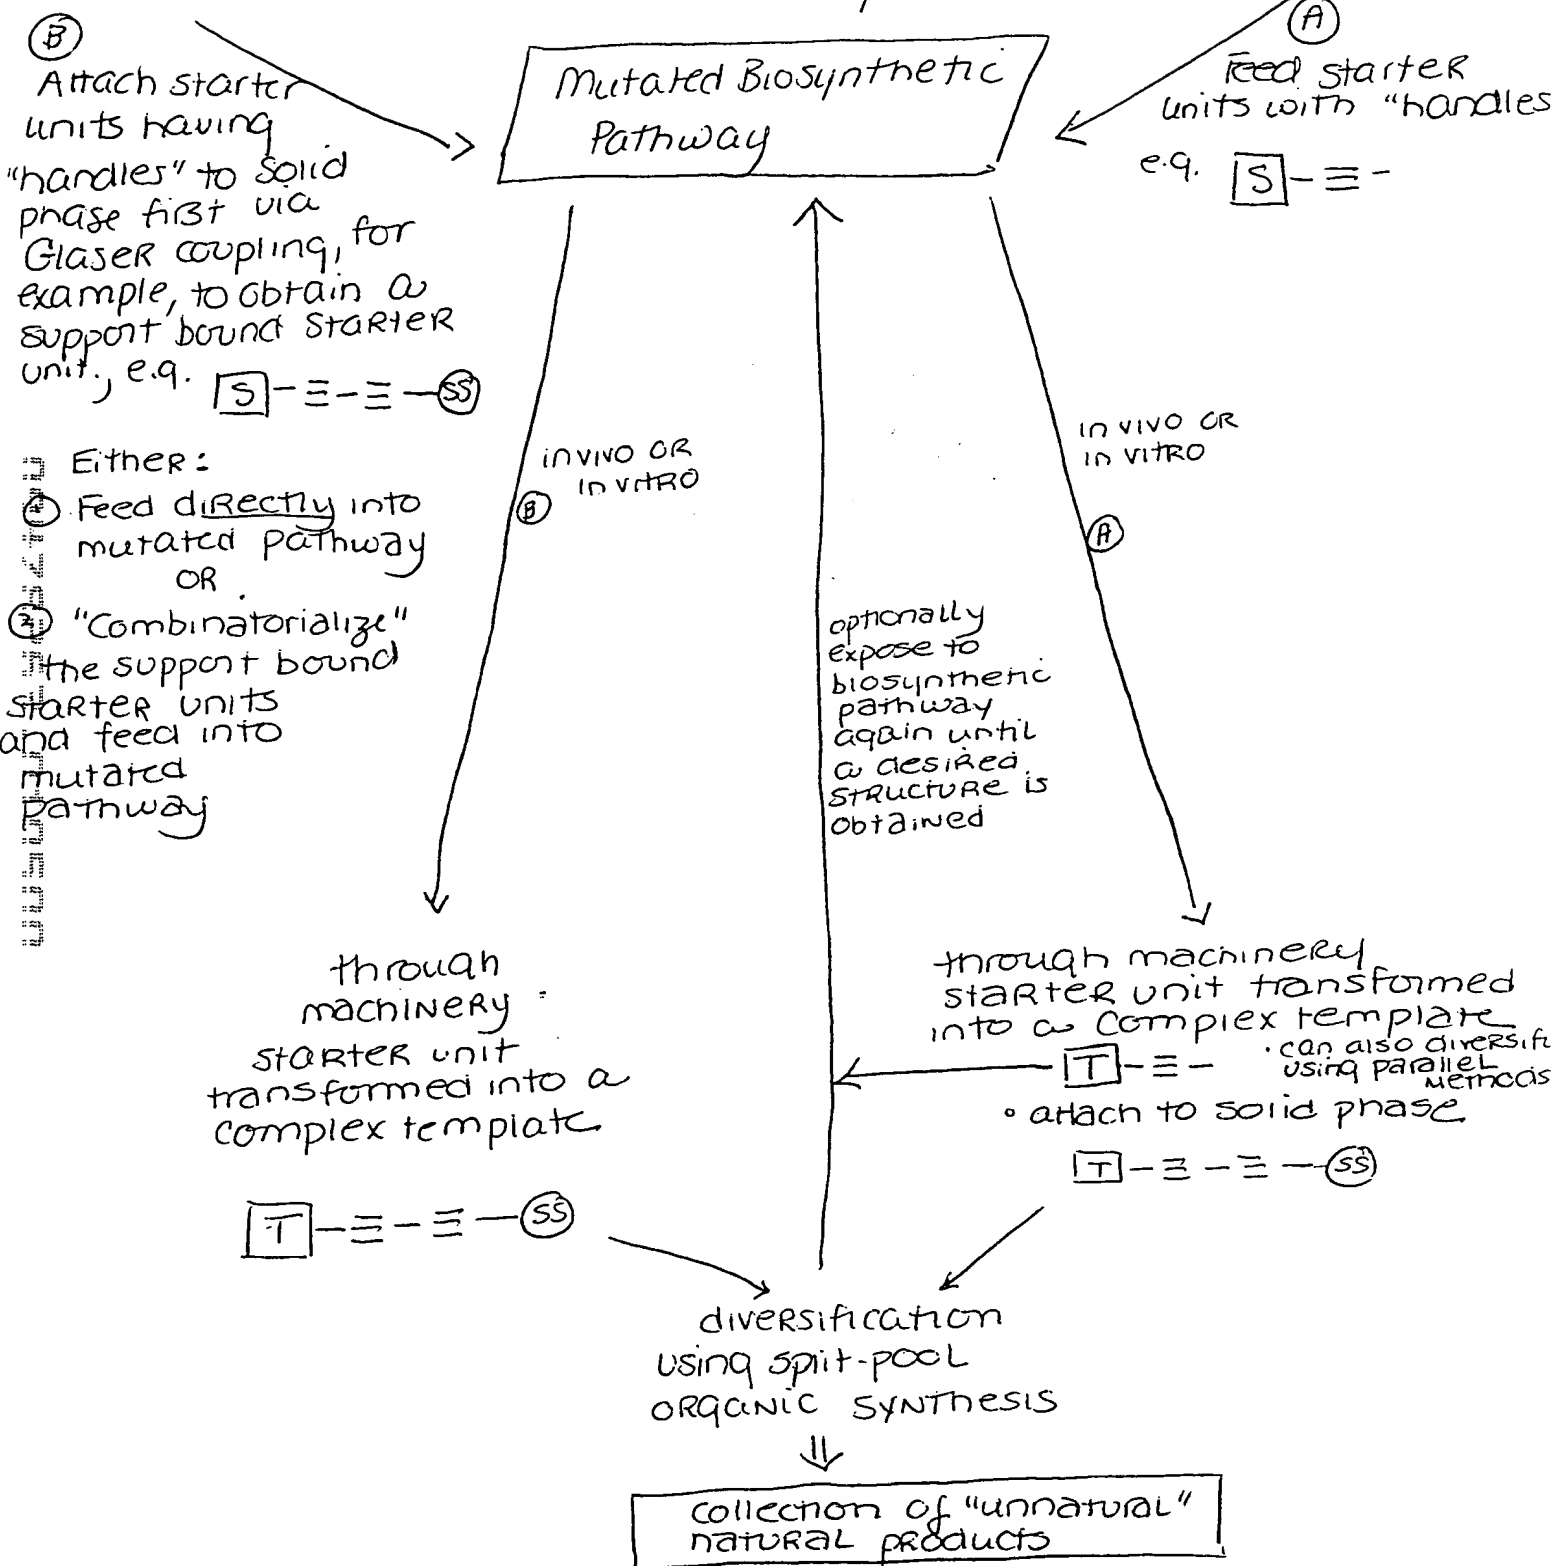 B
Attach starter
units having
"handles" to solid
phase first via
Glaser coupling, for
example, to obtain a
support bound starter
unit., e.g. S-≡-≡-SS
Either:
1 Feed directly into
mutated pathway
OR
2 "Combinatorialize"
the support bound
starter units
and feed into
mutated
pathway
Mutated Biosynthetic
Pathway
A
Feed starter
units with "handles
e.g. S-≡-
in vivo OR
in vitro
B
optionally
expose to
biosynthetic
pathway
again until
a desired
structure is
obtained
in vivo OR
in vitro
A
through
machinery
starter unit
transformed into a
complex template
T-≡-≡-SS
through machinery
starter unit transformed
into a complex template
T-≡-
• can also diversif
using parallel
methods
• attach to solid phase
T-≡-≡-SS
diversification
using split-pool
organic synthesis
collection of "unnatural"
natural products